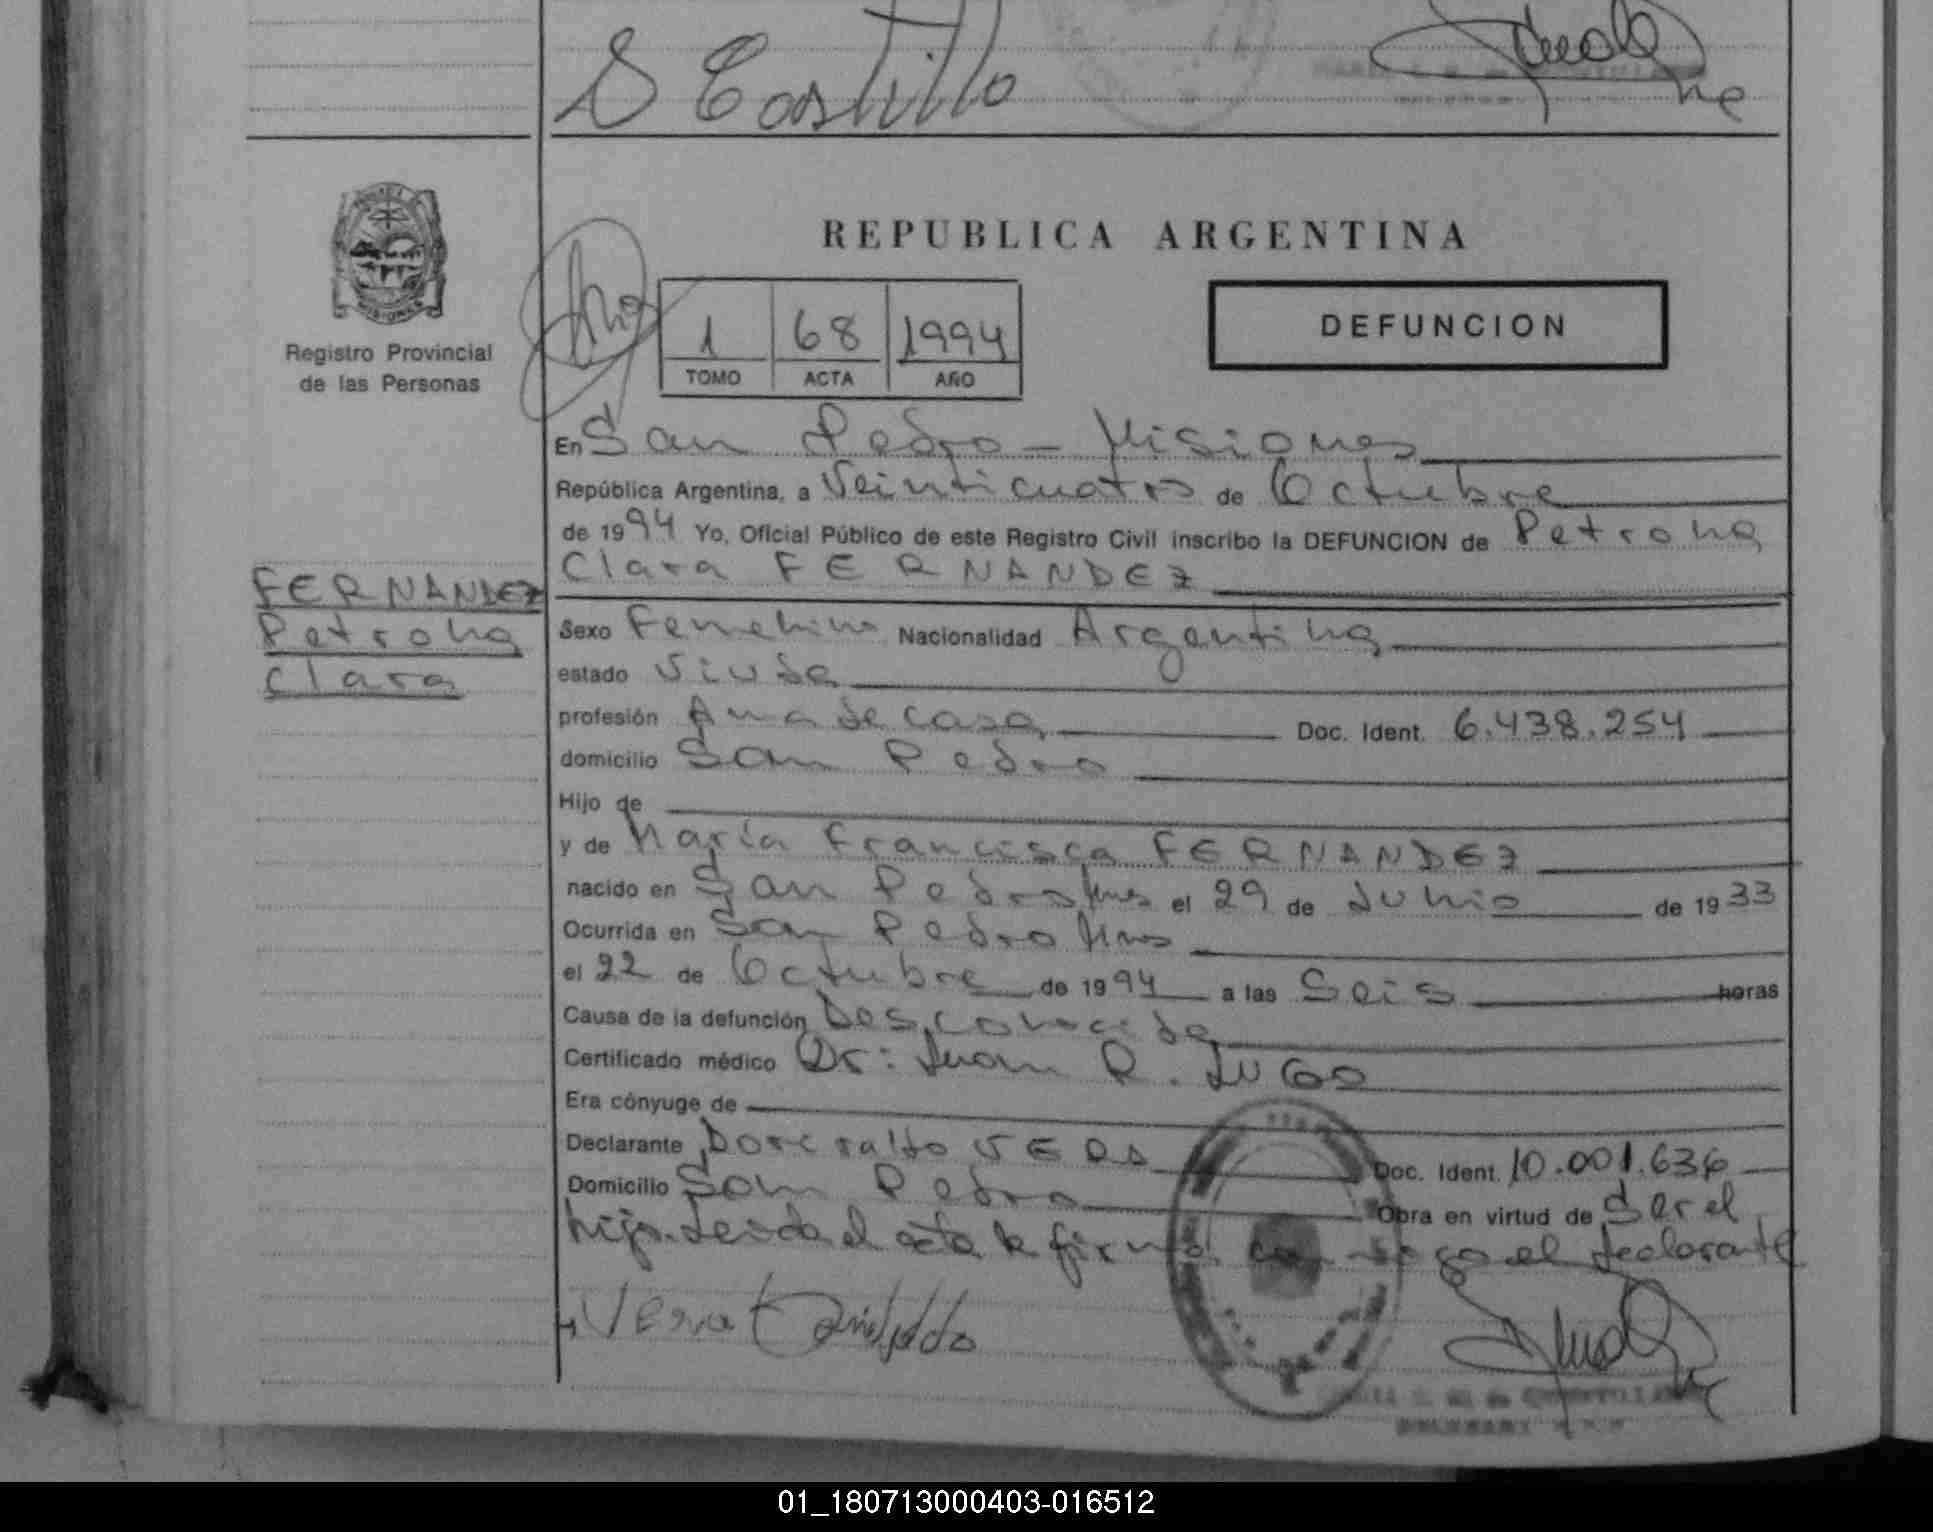 S Castillo
REPUBLICA ARGENTINA
Registro Provincial
de las Personas
1 68 1994
TOMO ACTA AÑO
DEFUNCION
En San Pedro - Misiones
República Argentina, a Veinticuatro de Octubre
de 1994 Yo, Oficial Público de este Registro Civil inscribo la DEFUNCION de Petrona
Clara FERNANDEZ
FERNANDEZ
Petrona
Clara
Sexo Femenino Nacionalidad Argentina
estado Viuda
profesión Ama de casa Doc. Ident. 6.438.254
domicilio San Pedro
Hijo de
y de María Francisca FERNANDEZ
nacido en San Pedro Mnes el 29 de Junio de 1933
Ocurrida en San Pedro Mnes
el 22 de Octubre de 1994 a las Seis horas
Causa de la defunción Desconocida
Certificado médico Dr: Juan R. LUGO
Era cónyuge de
Declarante VERA Doc. Ident. 10.001.636
Domicilio San Pedro Obra en virtud de Ser el
hijo. Leída el acta la firma con migo el declarante
Vera
01_180713000403-016512